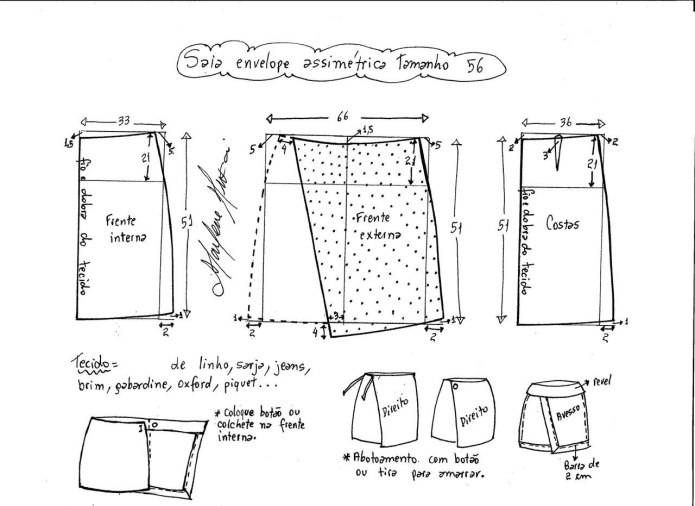 Saia envelope assimétrica Tamanho 56
33
1,5
21
51
2
1
Frente
interna
fio e dobra do tecido
66
1,5
5
4
5
21
51
Frente
externa
1
2
4
3
2
1
36
2
3
2
21
51
Costas
fio e dobra do tecido
1
2
Tecido = de linho, sarja, jeans,
brim, gabardine, oxford, piquet...
* Coloque botão ou
colchete na frente
interna.
Direito
Direito
* Abotoamento com botão
ou tira para amarrar.
revel
Avesso
Barra de
2 cm